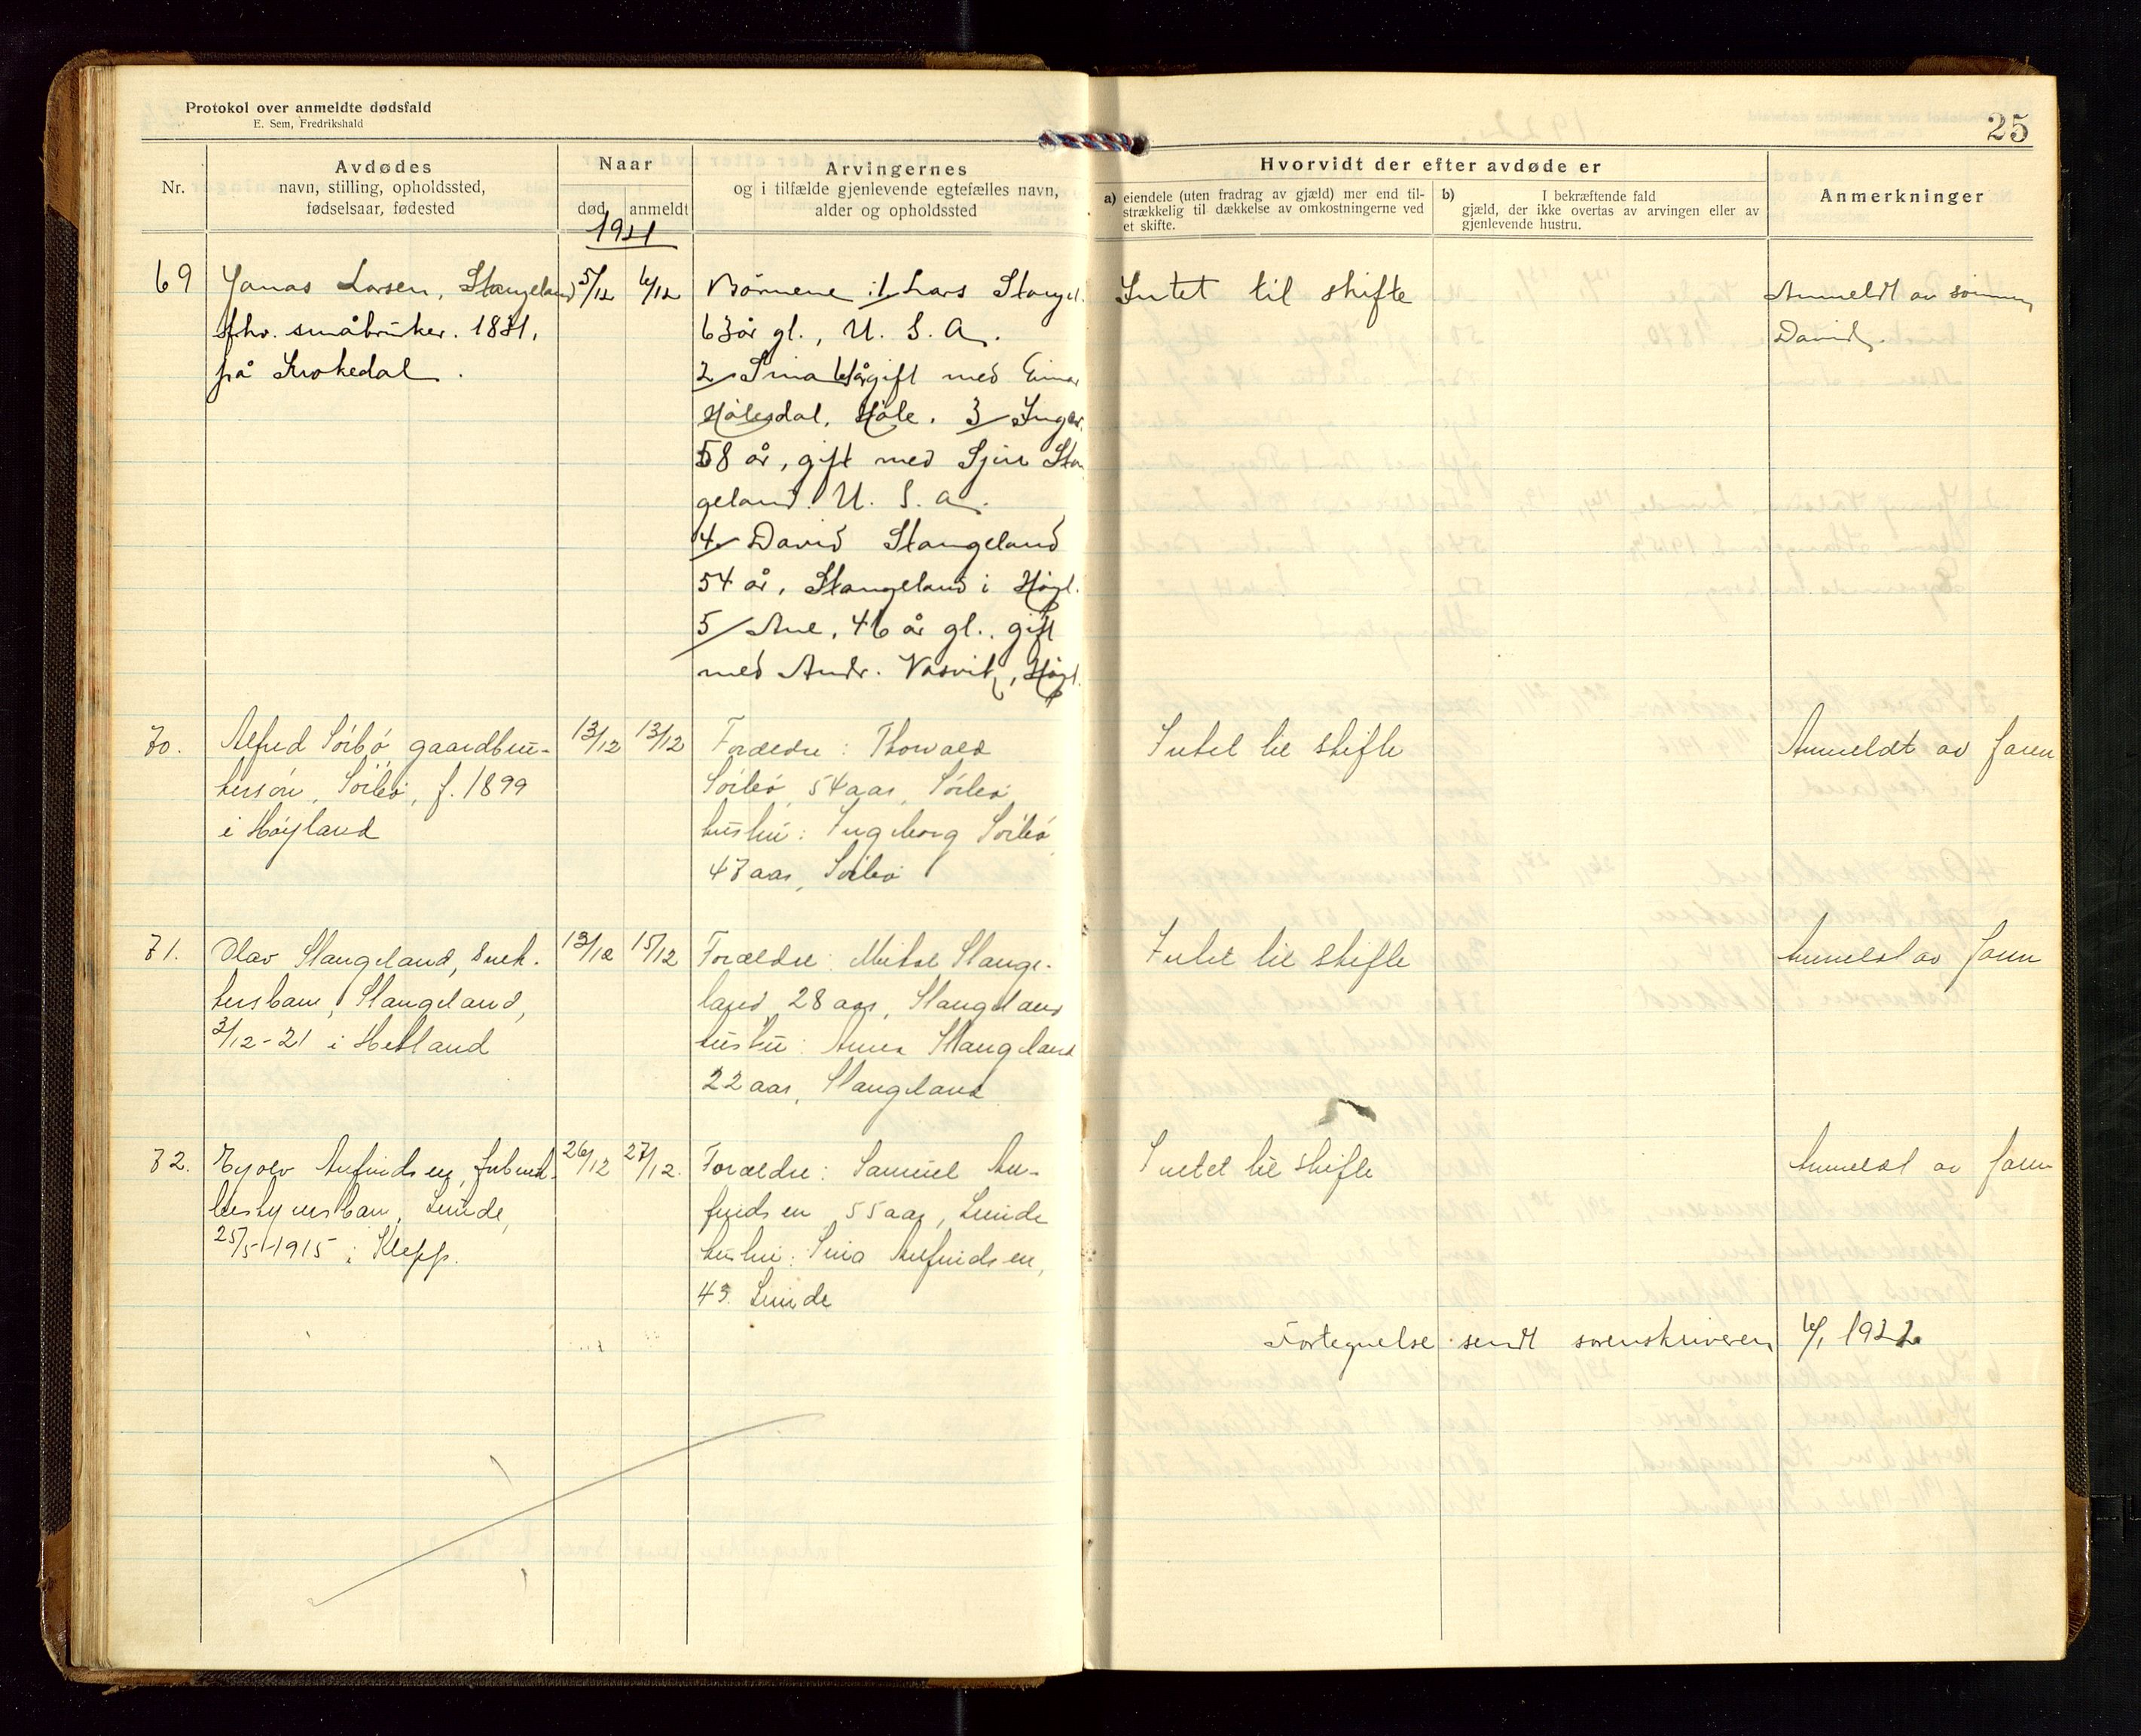 Protokol over anmeldte dødsfald
E. Sem, Fredrikshald
25
Nr.
Avdødes
navn, stilling, opholdssted,
fødselsaar, fødested
Naar
død
anmeldt
1921
Arvingernes
og i tilfælde gjenlevende egtefælles navn,
alder og opholdssted
Hvorvidt der efter avdøde er
a) eiendele (uten fradrag av gjæld) mer end til-
strækkelig til dækkelse av omkostningerne ved
et skifte.
b) I bekræftende fald
gjæld, der ikke overtas av arvingen eller av
gjenlevende hustru.
Anmerkninger
69
Jonas Larsen, Stangeland
fhv. småbruker. 1831,
på Krokedal.
5/12
6/12
Børnene: 1/ Lars Stangel.
63 år gl., U. S. A.
2/ Sina år gift med Einar
Hølesdal, Høle. 3/ Inger
58 år, gift med Stan
geland U. S. A.
4/ David Stangeland
54 år, Stangeland i Høyl.
5/ Ane, 46 år gl., gift
med Andr. Vasvik, Høyl.
Intet til skifte
Anmeldt av sønnen
David.
70.
Alfred Sørbø gaardbru-
kersøn, Sørbø, f. 1899
i Høyland
13/12
13/12
Forældre: Thorvald
Sørbø, 54 aar, Sørbø
hustru: Ingeborg Sørbø
47 aar, Sørbø
Intet til skifte
Anmeldt av faren
71.
Olav Stangeland, snek-
kersbarn, Stangeland,
3/12-21 i Hetland
13/12
15/12
Forældre: Mikal Stange-
land, 28 aar, Stangeland
hustru: Anna Stangeland
22 aar, Stangeland
Intet til skifte
Anmeldt av faren
72.
Eyolv Anfindsen,
barn, Lunde,
25/5-1915 i Klepp.
26/12
27/12.
Forældre: Samuel An-
findsen 55 aar, Lunde
hustru: Sina Anfindsen,
49. Lunde
Intet til skifte
Anmeldt av faren
Fortegnelse sendt sorenskriveren 6/1 1922.